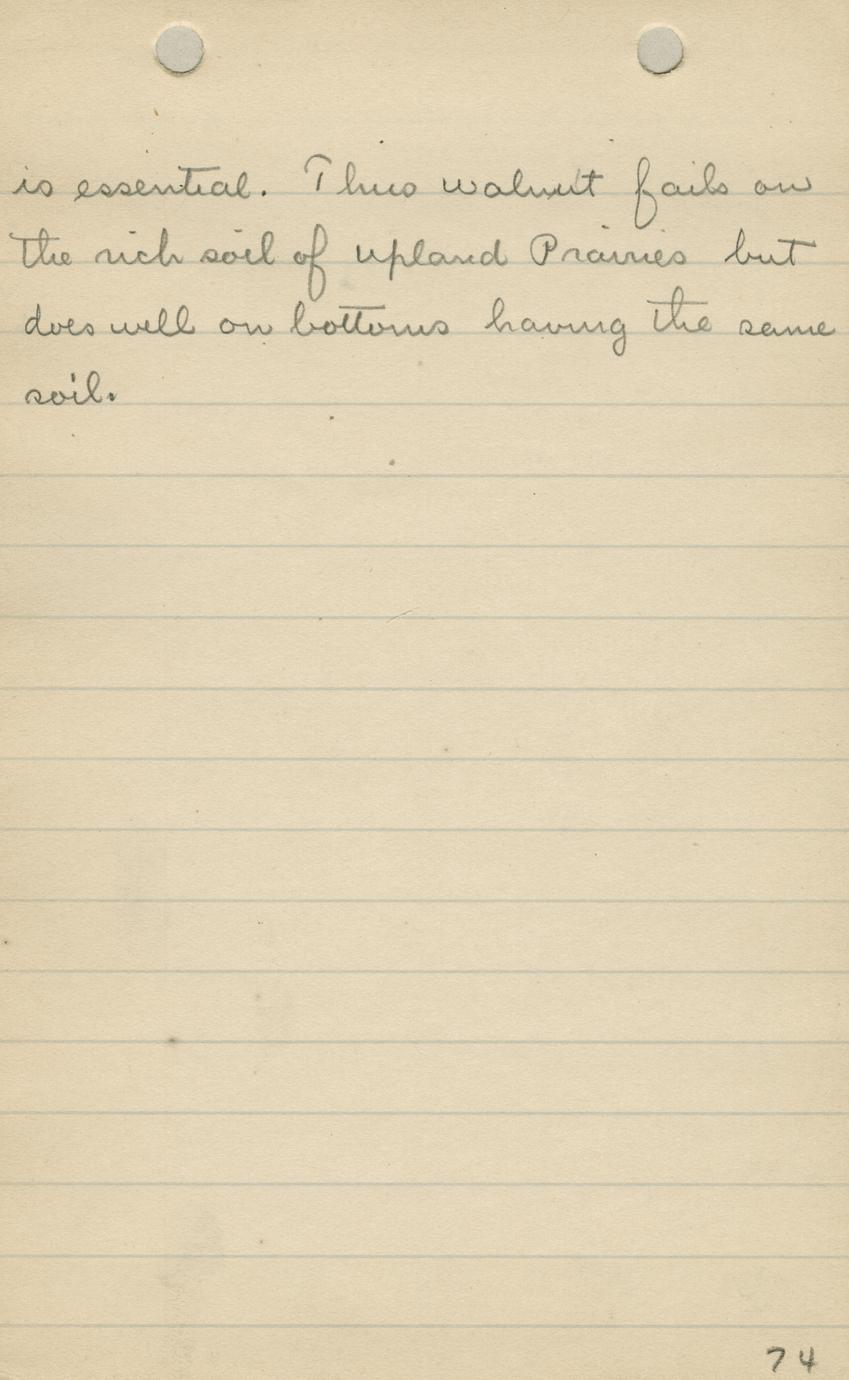 is essential. Thus walnut fails on
the rich soil of upland Prairies but
does well on bottoms having the same
soil.
74